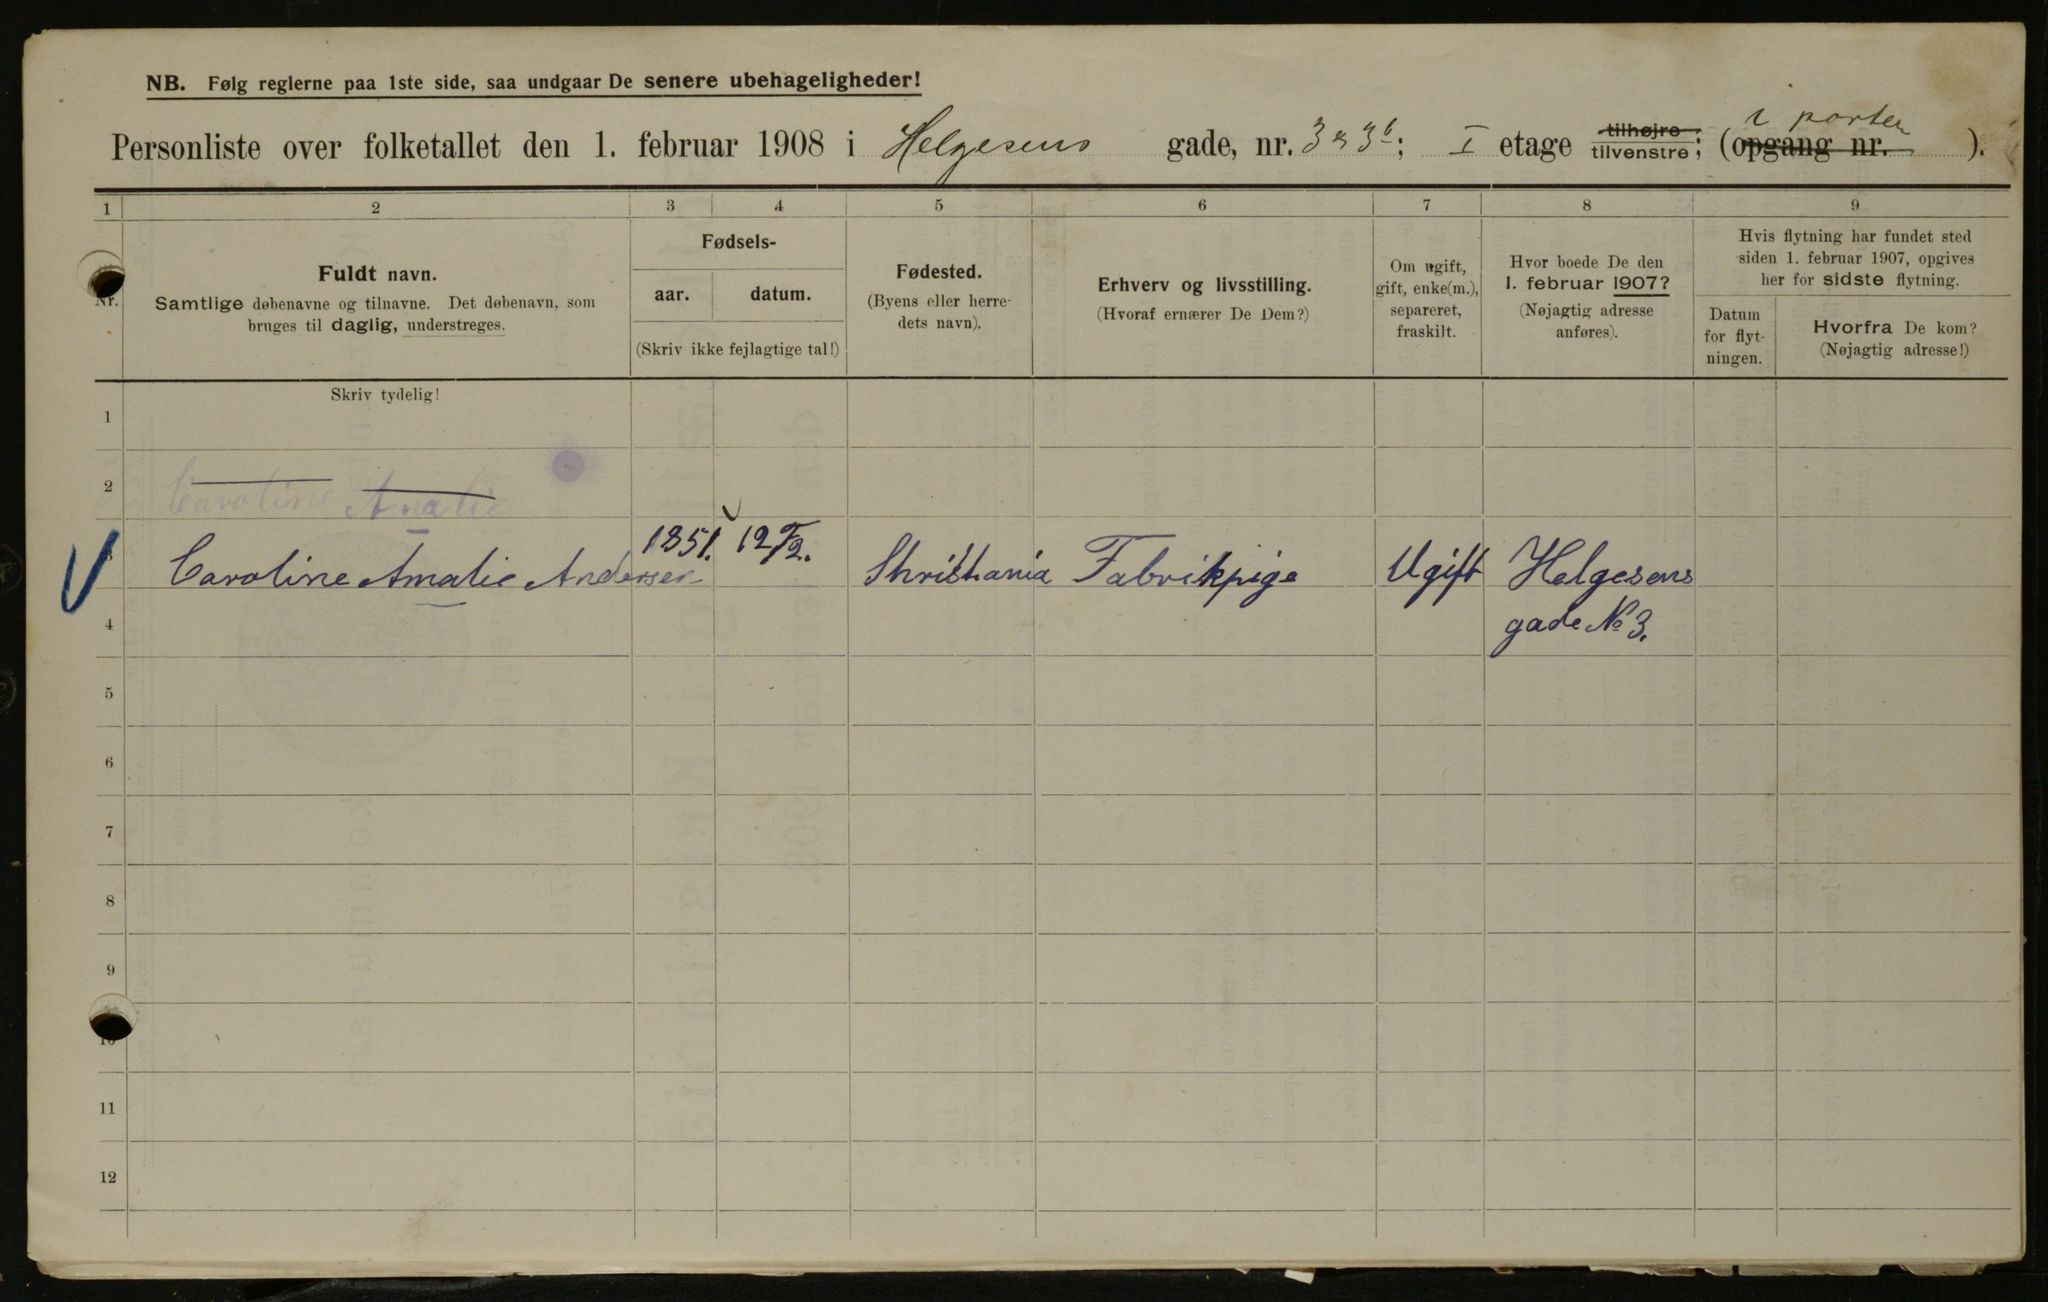 NB. Følg reglerne paa 1ste side, saa undgaar De senere ubehageligheder!
Personliste over folketallet den 1. februar 1908 i Helgesens gade, nr. 3 a 3b; I etage tilhøjre tilvenstre; (opgang nr. i porten ).
1 2 3 4 5 6 7 8 9
Nr.
Fuldt navn.
Samtlige døbenavne og tilnavne. Det døbenavn, som
bruges til daglig, understreges.
Fødsels-
aar. datum.
(Skriv ikke fejlagtige tal!)
Fødested.
(Byens eller herre-
dets navn).
Erhverv og livsstilling.
(Hvoraf ernærer De Dem?)
Om ugift,
gift, enke(m.),
separeret,
fraskilt.
Hvor boede De den
1. februar 1907?
(Nøjagtig adresse
anføres).
Hvis flytning har fundet sted
siden 1. februar 1907, opgives
her for sidste flytning.
Datum
for flyt-
ningen.
Hvorfra De kom?
(Nøjagtig adresse!)
Skriv tydelig!
1
2 Caroline Amalie
3 Caroline Amalie Andersen 1851. 12/2. Shristiania Fabrikpige Ugift Helgesens
4 gade No 3.
5
6
7
8
9
10
11
12